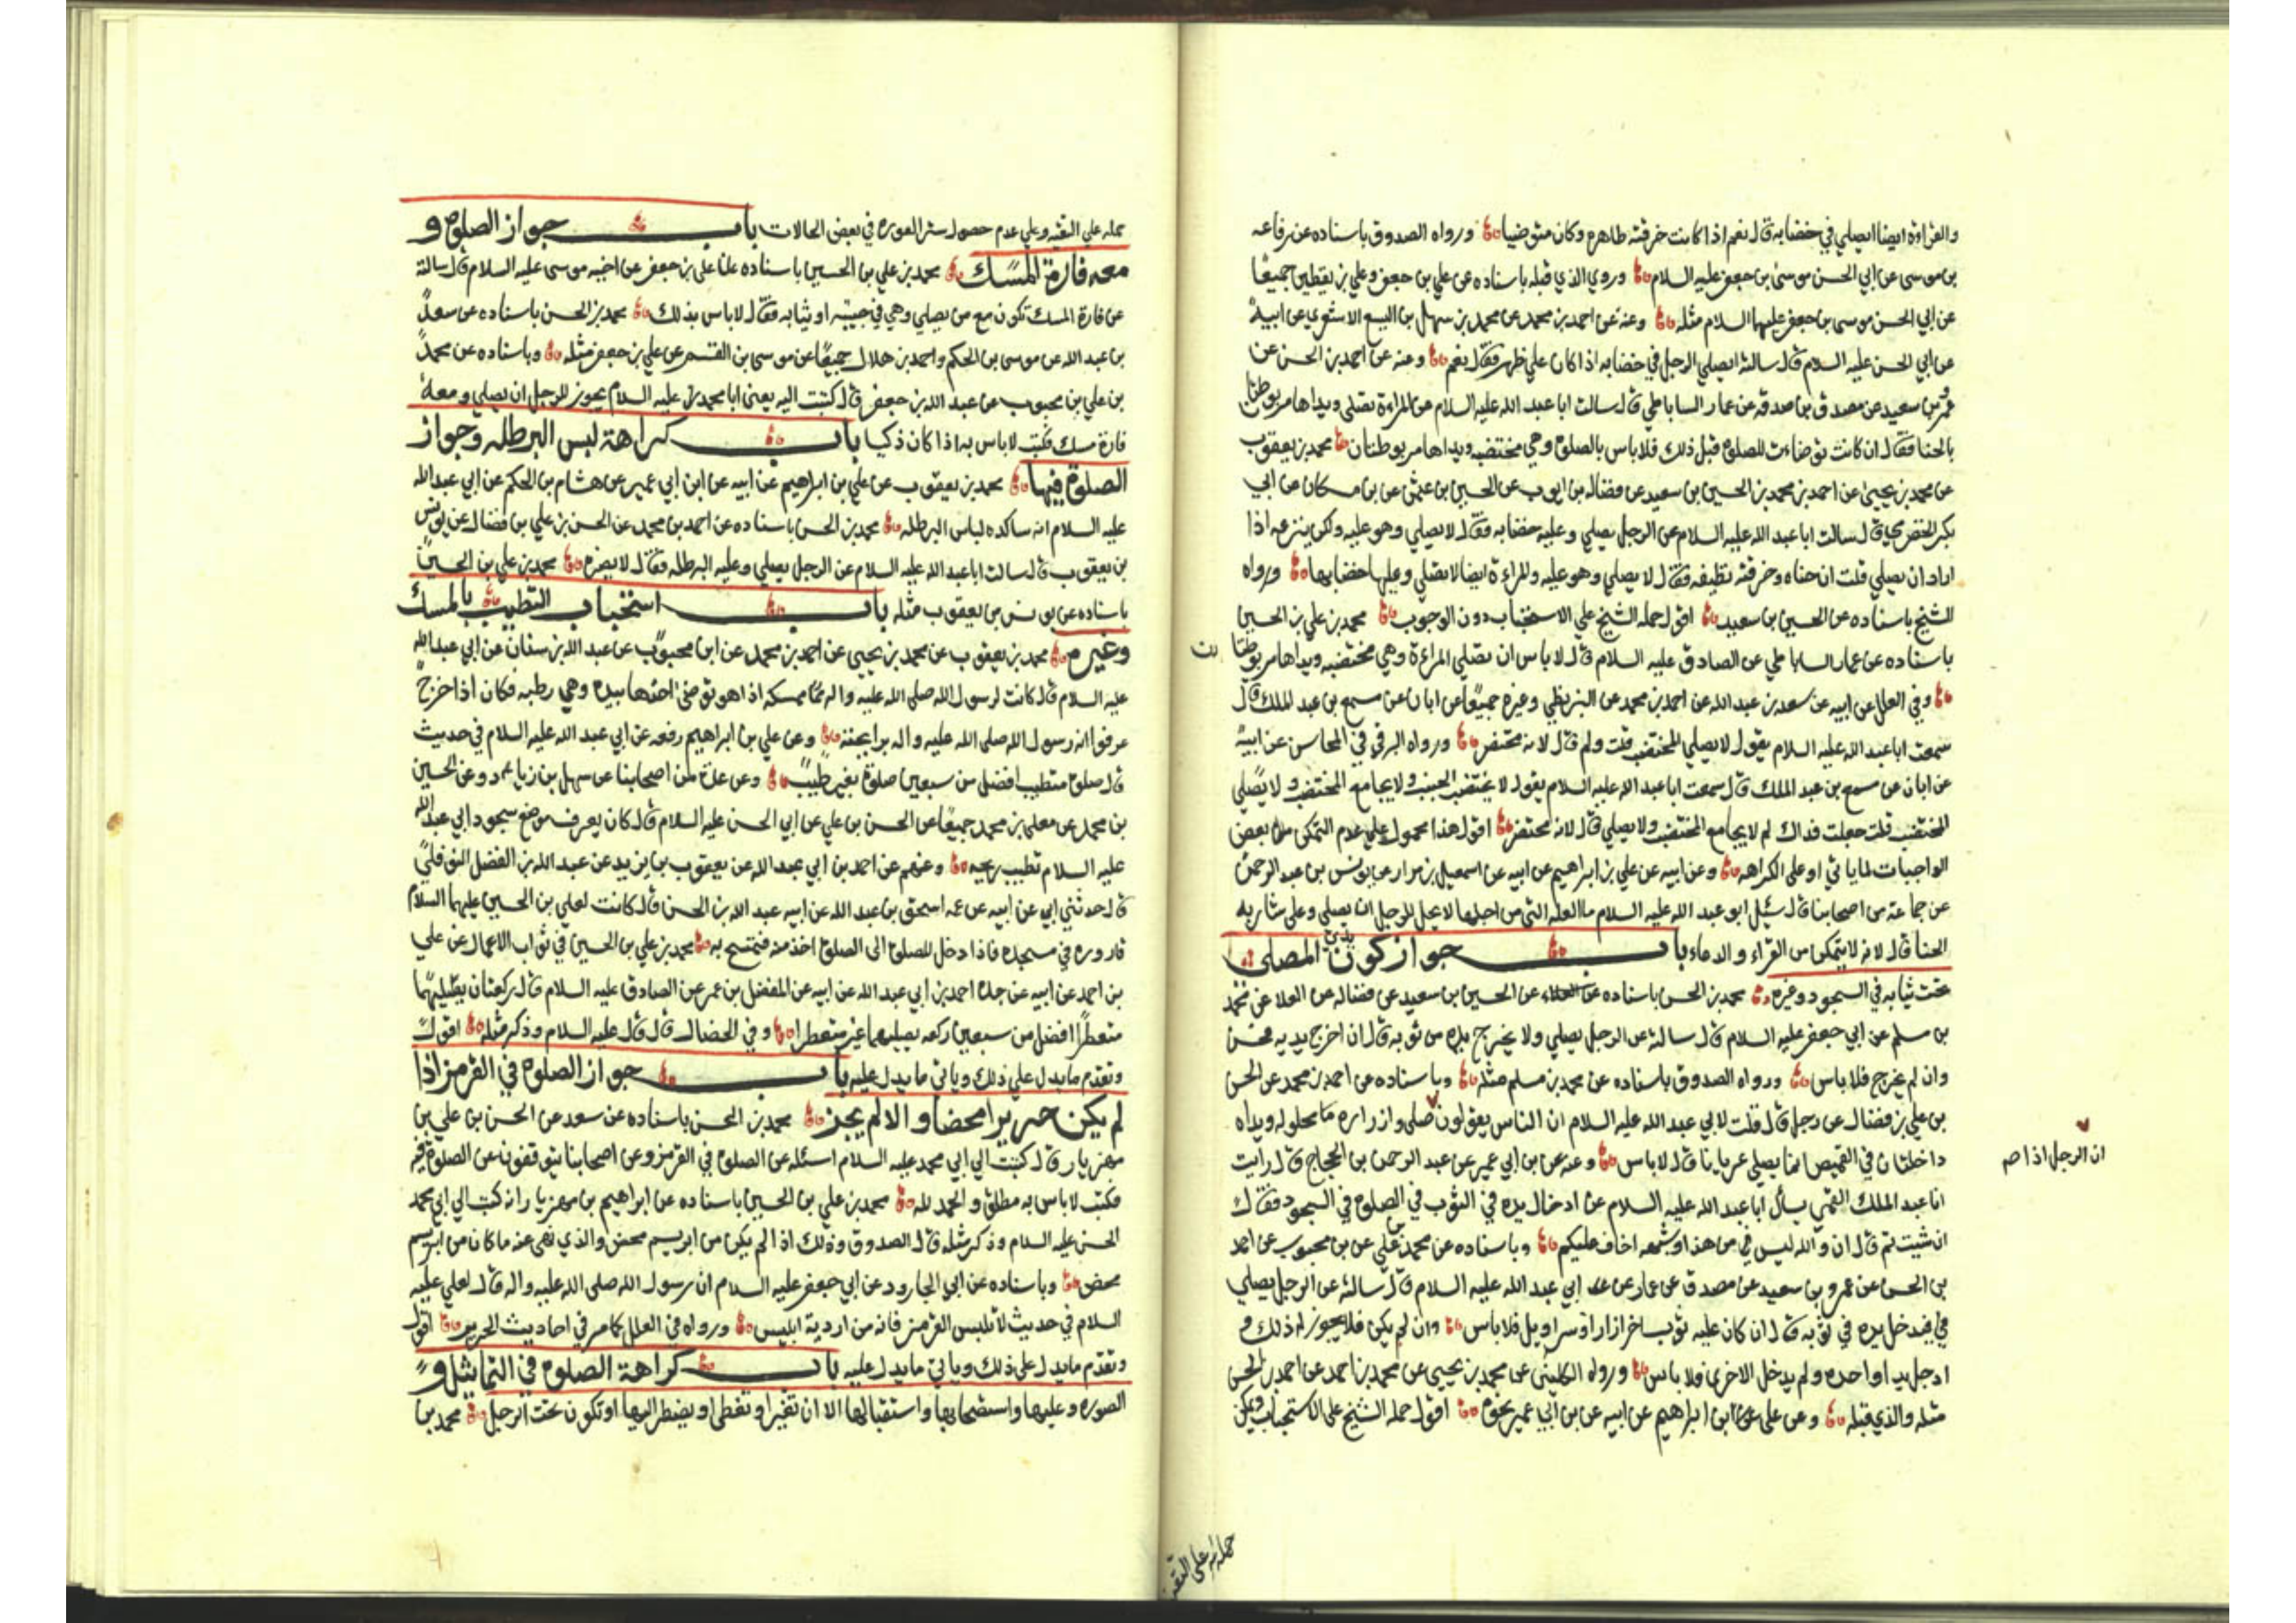 والقراءة ايضا ايصلي في خضابه قال نعم اذا كانت خرقته طاهرة وكان متوضيا ورواه الصدوق باسناده عن رفاعه
بن موسى عن ابي الحسن موسى بن جعفر عليه السلام وروي الذي قبله باسناده عن علي بن جعفر وعلي بن يقطين جميعا
عن ابي الحسن موسى بن جعفر عليهما السلام مثله وعنه عن احمد بن محمد عن محمد بن سهل بن اليسع الاشعري عن ابيه
عن ابي الحسن عليه السلام قال سالته ايصلي الرجل في خضابه اذا كان على طهر فقال نعم وعنه عن احمد بن الحسن عن
عمرو بن سعيد عن مصدق بن صدقه عن عمار الساباطي قال سالت ابا عبد الله عليه السلام عن المراءة تصلي ويداها مربوطتان
بالحنا فقال ان كانت توضات للصلوة قبل ذلك فلا باس بالصلوة وهي مختضبه ويداها مربوطتان محمد بن يعقوب
عن محمد بن يحيى عن احمد بن محمد عن الحسين بن سعيد عن فضاله بن ايوب عن الحسين بن عثمن عن بن مسكان عن ابي
بكر الحضرمي قال سالت ابا عبد الله عليه السلام عن الرجل يصلي وعليه خضابه فقال لا يصلي وهو عليه ولكن ينزعه اذا
اراد ان يصلي قلت ان حناه وخرقته نظيفه فقال لا يصلي وهو عليه والمراءة ايضا لا تصلي وعليها خضابها ورواه
الشيخ باسناده عن الحسين بن سعيد اقول حمله الشيخ علي الاستحباب دون الوجوب محمد بن علي بن الحسين
باسناده عن عمار الساباطي عن الصادق عليه السلام قال لا باس ان تصلي المراءة وهي مختضبه ويداها مربوطتا
ن
وفي العلل عن ابيه عن سعد بن عبد الله عن احمد بن محمد عن البزنطي وغيره جميعا عن ابان عن مسمع بن عبد الملك قال
سمعت ابا عبد الله عليه السلام يقول لا يصلي المختضب قلت ولم قال لانه محتضر ورواه البرقي في المحاسن عن ابيه
عن ابان عن مسمع بن عبد الملك قال سمعت ابا عبد الله عليه السلام يقول لا يختضب الجنب ولا يجامع المختضب ولا يصلي
المختضب قلت جعلت فداك لم لا يجامع المختضب ولا يصلي قال لانه محتضر اقول هذا محمول علي عدم التمكن من بعض
الواجبات لما ياتي او على الكراهه وعن ابيه عن علي بن ابراهيم عن ابيه عن اسمعيل بن مرار عن يونس بن عبد الرحمن
عن جماعة من اصحابنا قال سئل ابو عبد الله عليه السلام ما العله التي من اجلها لا يحل للرجل ان يصلي وعلى شاربه
الحنا قال لانه لا يتمكن من القراء والدعاء باب جواز كون يدي المصلى
تحت ثيابه في السجود وغيره محمد بن الحسن باسناده عن الحسين بن سعيد عن فضاله عن العلا عن محمد
بن مسلم عن ابي جعفر عليه السلام قال سالته عن الرجل يصلي ولا يخرج يده من ثوبه قال ان اخرج يديه فحسن
وان لم يخرج فلا باس ورواه الصدوق باسناده عن محمد بن مسلم مثله وباسناده عن احمد بن محمد عن الحسن
بن علي بن فضال عن رجل قال قلت لابي عبد الله عليه السلام ان الناس يقولون صلى وازراره محلوله ويداه
ان الرجل اذا صح
داخلتان في القميص انما يصلي عريانا قال لا باس وعنه عن بن ابي عمير عن عبد الرحمن بن الحجاج قال رايت
انا عبد الملك القمي يسال ابا عبد الله عليه السلام عن ادخال يده في الثوب في الصلوة في السجود فقال
ان شيت ثم قال ان والله ليس في من هذا وشبهه اخاف عليكم وباسناده عن محمد بن علي عن بن محبوب عن احمد
بن الحسن عن عمرو بن سعيد عن مصدق عن عمار عن ابي عبد الله عليه السلام قال سالته عن الرجل يصلي
فيدخل يده في ثوبه قال ان كان عليه ثوب اخر ازار او سراويل فلا باس وان لم يكن فلا يجوز له ذلك و
ادخل يدا واحده ولم يدخل الاخرى فلا باس ورواه الكليني عن محمد بن يحيى عن محمد بن احمد عن احمد بن الحسن
مثله والذي قبله وعن علي بن ابراهيم عن ابيه عن بن ابي عمير نحوه اقول حمله الشيخ علي الاستحباب ويمكن
حمله على التقيه
حمله علي التقيه وعلي عدم حصول ستر العوره في بعض الحالات باب جواز الصلوة و
معه فارة المسك محمد بن علي بن الحسين باسناده عن علي بن جعفر عن اخيه موسى عليه السلام قال سالته
عن فارة المسك تكون مع من يصلي وهي في جيبه او ثيابه فقال لا باس بذلك محمد بن الحسن باسناده عن سعد
بن عبد الله عن موسى بن الحكم واحمد بن هلال جميعا عن موسى بن القسم عن علي بن جعفر مثله وباسناده عن محمد
بن علي بن محبوب عن عبد الله بن جعفر قال كتبت اليه يعني ابا محمد عليه السلام يجوز للرجل ان يصلي ومعه
فارة مسك فكتب لا باس به اذا كان ذكيا باب كراهة لبس البرطله وجواز
الصلوة فيها محمد بن يعقوب عن علي بن ابراهيم عن ابيه عن ابن ابي عمير عن هشام بن الحكم عن ابي عبد الله
عليه السلام انه ساكده لباس البرطله محمد بن الحسن باسناده عن احمد بن محمد عن الحسن بن علي بن فضال عن يونس
بن يعقوب قال سالت ابا عبد الله عليه السلام عن الرجل يصلي وعليه البرطله فقال لا يضره محمد بن علي بن الحسين
باسناده عن يونس بن يعقوب مثله باب استحباب التطيب بالمسك
وغيره محمد بن يعقوب عن محمد بن يحيى عن احمد بن محمد عن ابن محبوب عن عبد الله بن سنان عن ابي عبد الله
عليه السلام قال كانت لرسول الله صلى الله عليه واله ممسكه اذا هو توضى اخذها بيده وهي رطبه فكان اذا خرج
عرفوا انه رسول الله صلى الله عليه واله برايحته وعن علي بن ابراهيم رفعه عن ابي عبد الله عليه السلام في حديث
قال صلوة متطيب افضل من سبعين صلوة بغير طيب وعن عدة من اصحابنا عن سهل بن زياد وعن الحسين
بن محمد عن معلى بن محمد جميعا عن الحسن بن علي عن ابي الحسن عليه السلام قال كان يعرف موضع سجود ابي عبد الله
عليه السلام تطيب ريحه وعنهم عن احمد بن ابي عبد الله عن يعقوب بن يزيد عن عبد الله بن الفضل النوفلي
قال حدثني ابي عن ابيه عن عمه اسحق بن عبد الله عن ابيه عبد الله بن الحسن قال كانت لعلي بن الحسين عليهما السلام
قاروره في مسجده فاذا دخل للصلوة الى الصلوة اخذ منه فتمسح به محمد بن علي بن الحسين في ثواب الاعمال عن علي
بن احمد عن ابيه عن جده احمد بن ابي عبد الله عن ابيه عن المفضل بن عمر عن الصادق عليه السلام قال ركعتان يصليهما
متعطرا افضل من سبعين ركعه يصليهما غير متعطر وفي الخصال قال قال عليه السلام وذكر مثله اقول
وتقدم ما يدل علي ذلك وياتي ما يدل عليه باب جواز الصلوة في القرمز اذا
لم يكن حريرا محضا والا لم يجز محمد بن الحسن باسناده عن سعد عن الحسن بن علي بن
مهزيار قال كتبت الي ابي محمد عليه السلام اسئله عن الصلوة في القرمز وعن اصحابنا يتوقفون عن الصلوة فيه
فكتب لا باس به مطلق والحمد لله محمد بن علي بن الحسين باسناده عن ابراهيم بن مهزيار انه كتب الي ابي محمد
الحسن عليه السلام وذكر مثله قال الصدوق وذلك اذا لم يكن من ابريسم محض والذي نهى عنه ما كان من ابريسم
محض وباسناده عن ابي الجارود عن ابي جعفر عليه السلام ان رسول الله صلى الله عليه واله قال لعلي عليه
السلام في حديث لا تلبس القرمز فانه من اردية ابليس ورواه في العلل كما مر في احاديث الحرير اقول
وتقدم ما يدل علي ذلك وياتي ما يدل عليه باب كراهة الصلوة في التماثيل و
الصوره وعليها واستصحابها واستقبالها الا ان تغير او تغطى او يضطر اليها او تكون تحت الرجل محمد بن